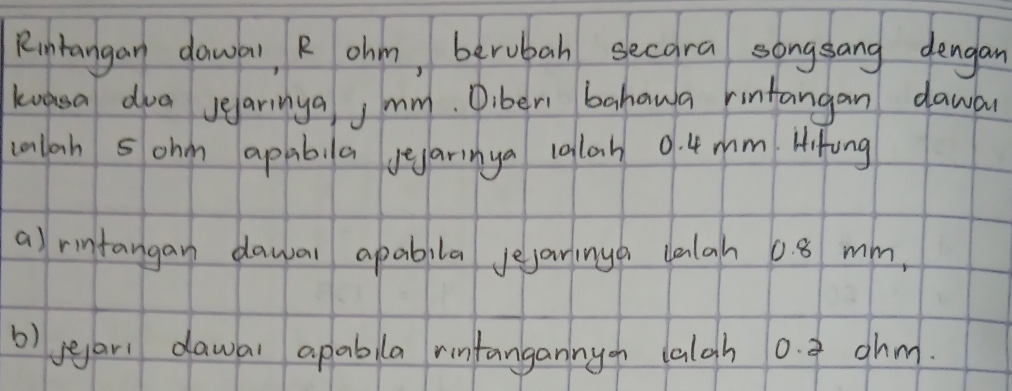 Rintangan dawai, R ohm, berubah secara songsang dengan
kuasa dua jejarinya, j mm. Diberi bahawa rintangan dawai
ialah 5 ohm apabila jejarinya ialah 0.4 mm. Hitung
a) rintangan dawai apabila jejarinya ialah 0.8 mm,
b) jejari dawai apabila rintangannya ialah 0.2 ohm.